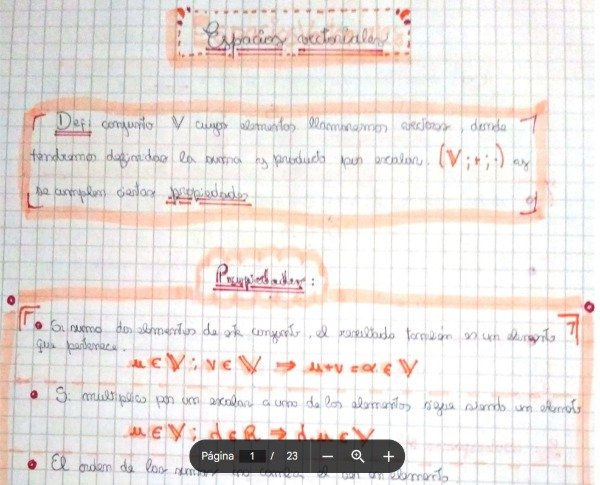 Espacios vectoriales
Def: conjunto V cuyos elementos llamaremos vectores, donde
tendremos definidas la suma y producto por escalar. (V;+;·) y
se cumplen ciertas propiedades
Propiedades:
• Si sumo dos elementos de este conjunto, el resultado también es un elemento
que pertenece.
u ∈ V; v ∈ V ⇒ u+v = α ∈ V
• Si multiplico por un escalar a uno de los elementos sigue siendo un elemento
u ∈ V; d ∈ R ⇒ d.u ∈ V
Página 1 / 23
• El orden de las